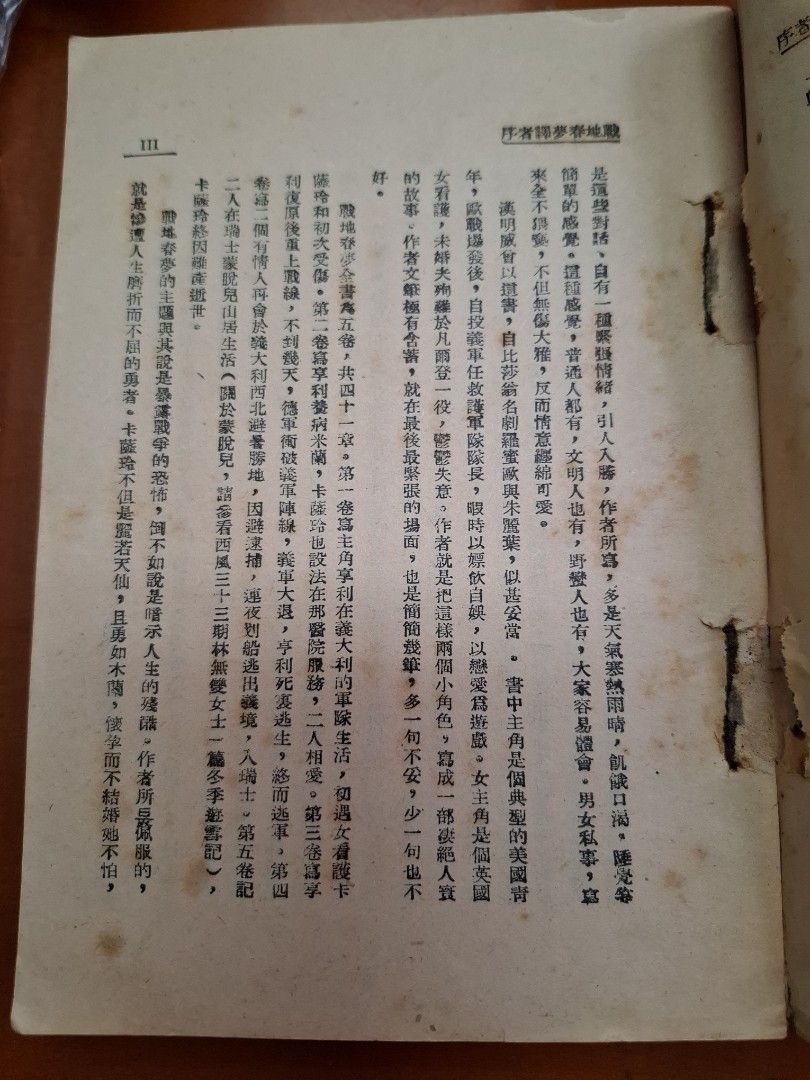 戰地春夢譯者序
III
是這些對話、自有一種緊張情緒，引人入勝，作者所寫，多是天氣寒熱雨晴，飢餓口渴。睡覺等
簡單的感覺。這種感覺，普通人都有，文明人也有，野蠻人也有，大家容易體會。男女私事，寫
來全不猥褻，不但無傷大雅，反而情意纏綿可愛。
漢明威曾以這書，自比莎翁名劇羅蜜歐與朱麗葉，似甚妥當。書中主角是個典型的美國青
年，歐戰爆發後，自投義軍任救護軍隊隊長，暇時以嫖飲自娛，以戀愛爲遊戲。女主角是個英國
女看護，未婚夫殉難於凡爾登一役，鬱鬱失意。作者就是把這樣兩個小角色，寫成一部凄絕人寰
的故事。作者文筆極有含蓄，就在最後最緊張的場面，也是簡簡幾筆，多一句不妥，少一句也不
好。
戰地春夢全書爲五卷，共四十一章。第一卷寫主角亨利在義大利的軍隊生活，初遇女看護卡
薩玲和初次受傷。第二卷寫亨利養病米蘭，卡薩玲也設法在那醫院服務，二人相愛。第三卷寫亨
利復原後重上戰線，不到幾天，德軍衝破義軍陣線，義軍大退，亨利死裏逃生，終而逃軍。第四
卷寫二個有情人再會於義大利西北避暑勝地，因避逮捕，連夜划船逃出義境，入瑞士。第五卷記
二人在瑞士蒙脫兒山居生活（關於蒙脫兒，請參看西風三十三期林無雙女士一篇冬季遊雪記），
卡薩玲終因難產逝世。
戰地春夢的主題與其說是暴露戰爭的恐怖，倒不如說是暗示人生的殘酷。作者所最佩服的，
就是慘遭人生磨折而不屈的勇者。卡薩玲不但是麗若天仙，且勇如木蘭，懷孕而不結婚她不怕，